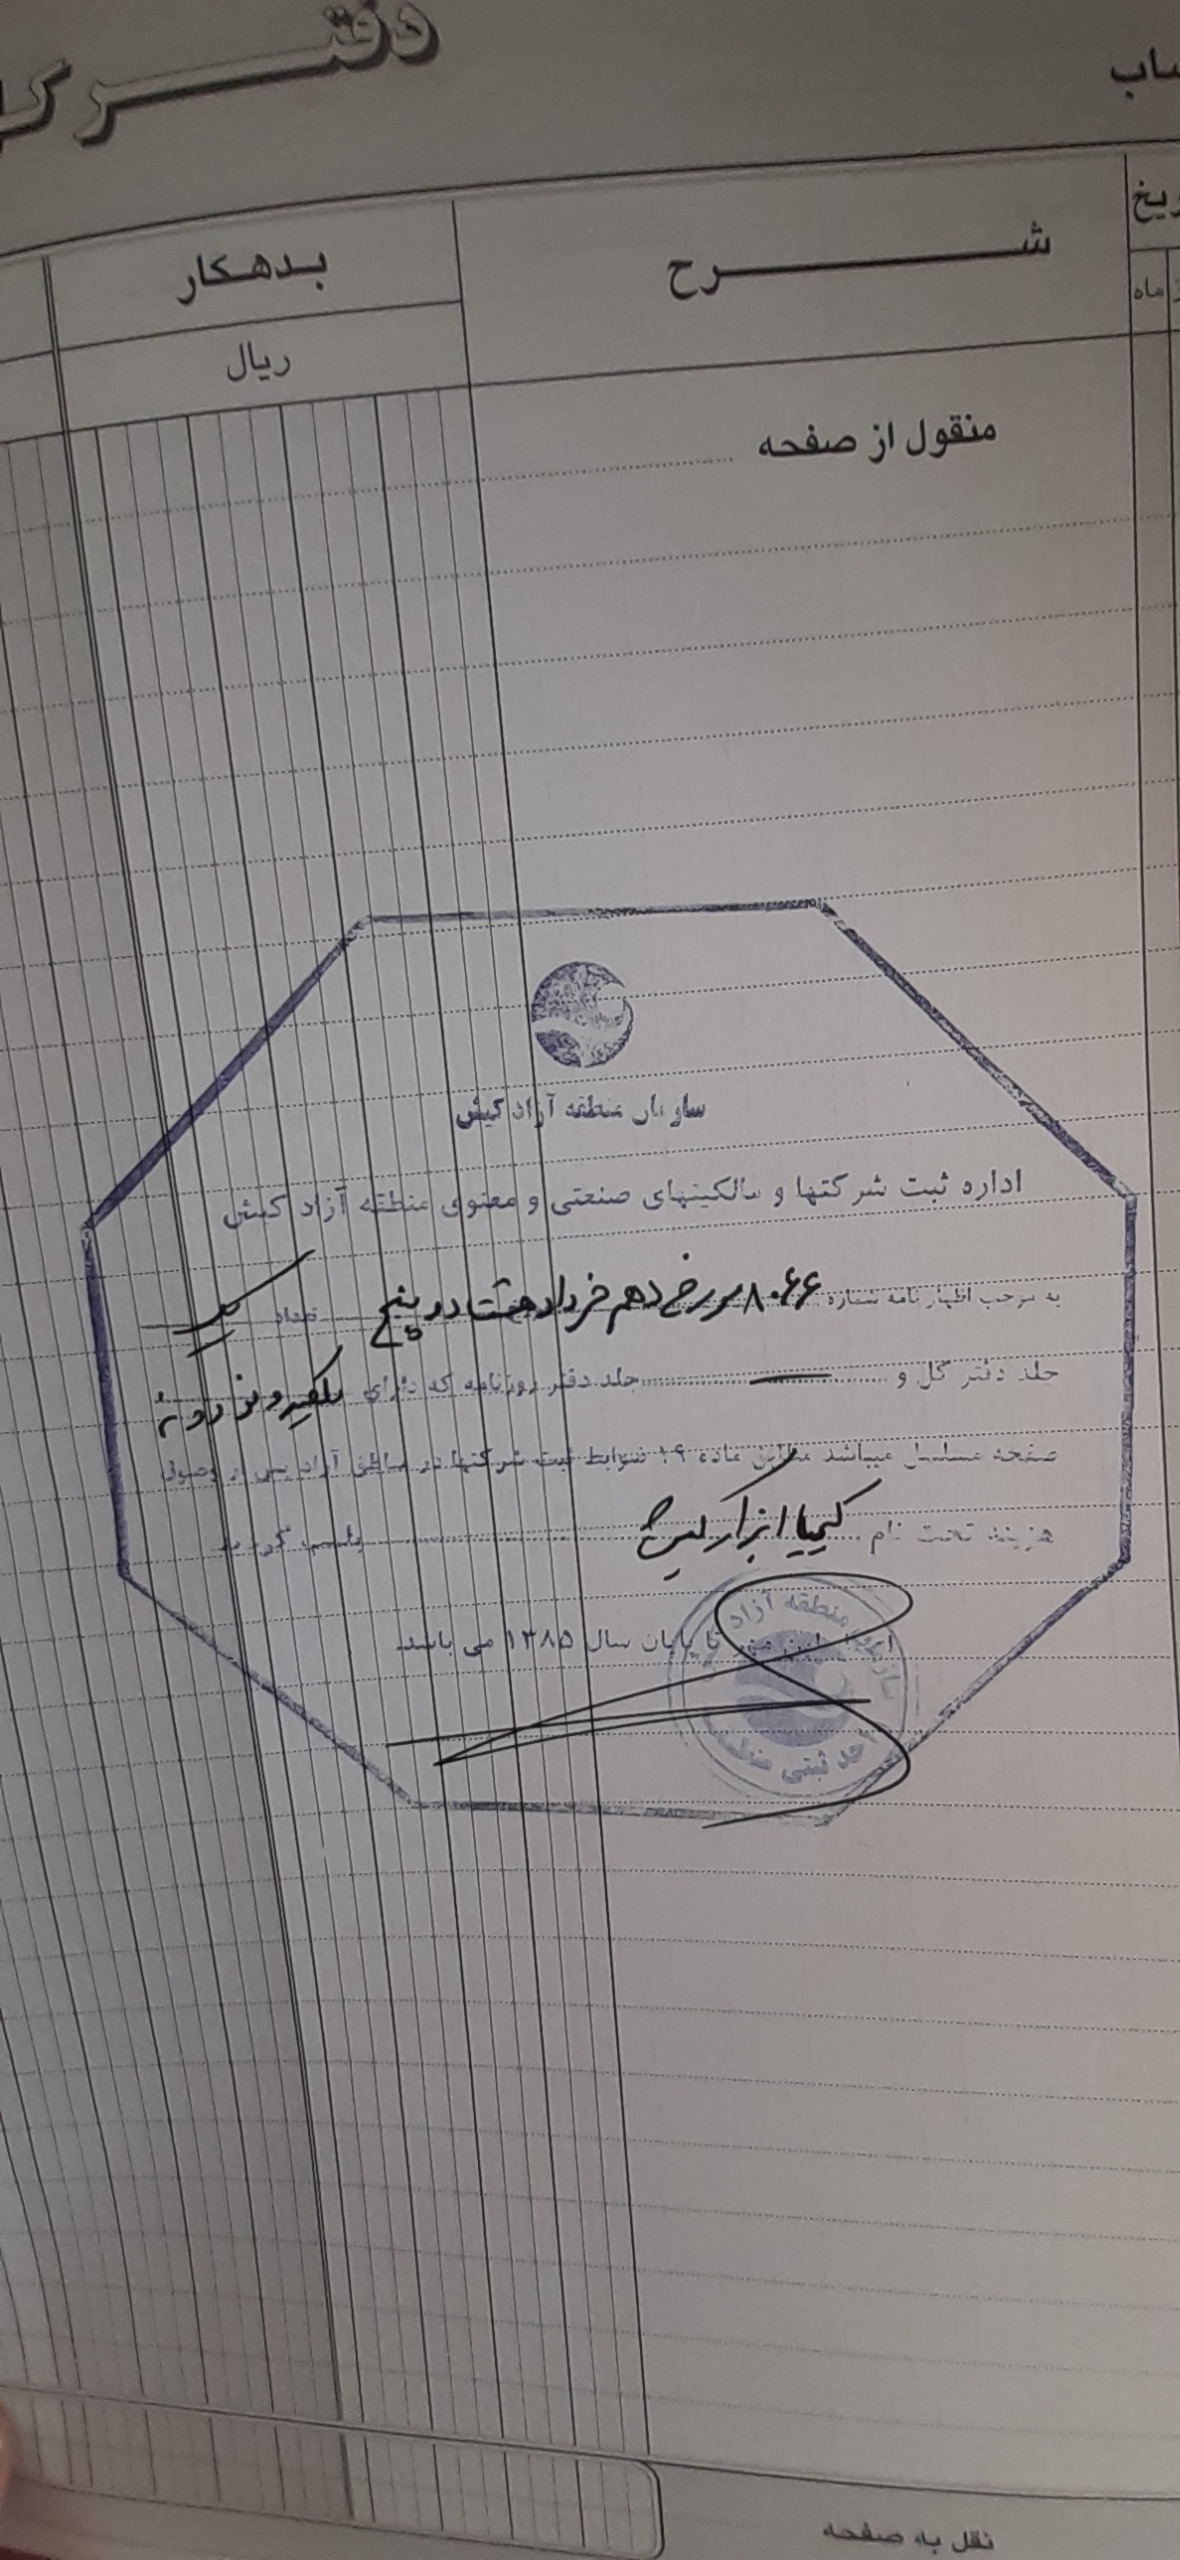 دفتر
شرح
بدهکار
ماه
ریال
منقول از صفحه
سازمان منطقه آزاد کیش
اداره ثبت شرکتها و مالکیتهای صنعتی و معنوی منطقه آزاد کیش
به موجب اظهار نامه شماره ۸۰۶۶ مورخ دهم خرداد هشتاد و پنج تعداد یک
جلد دفتر کل و جلد دفتر روزنامه که دارای یکصد و
صفحه مسلسل میباشد مطابق ماده ۱۹ ضوابط ثبت شرکتها در مناطق آزاد پس از وصول
هزینه تحت نام کیمیا ابزار کیش پلمپ گردید
اعتبار این مهر تا پایان سال ۱۳۸۵ می باشد.
منطقه آزاد
واحد ثبتی منطقه
نقل به صفحه